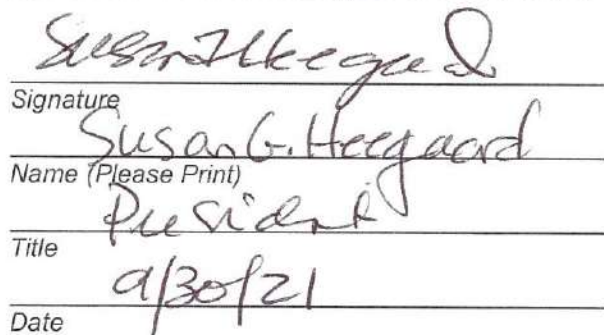 Susan Heegaard
Signature
Susan G. Heegaard
Name (Please Print)
President
Title
9/30/21
Date